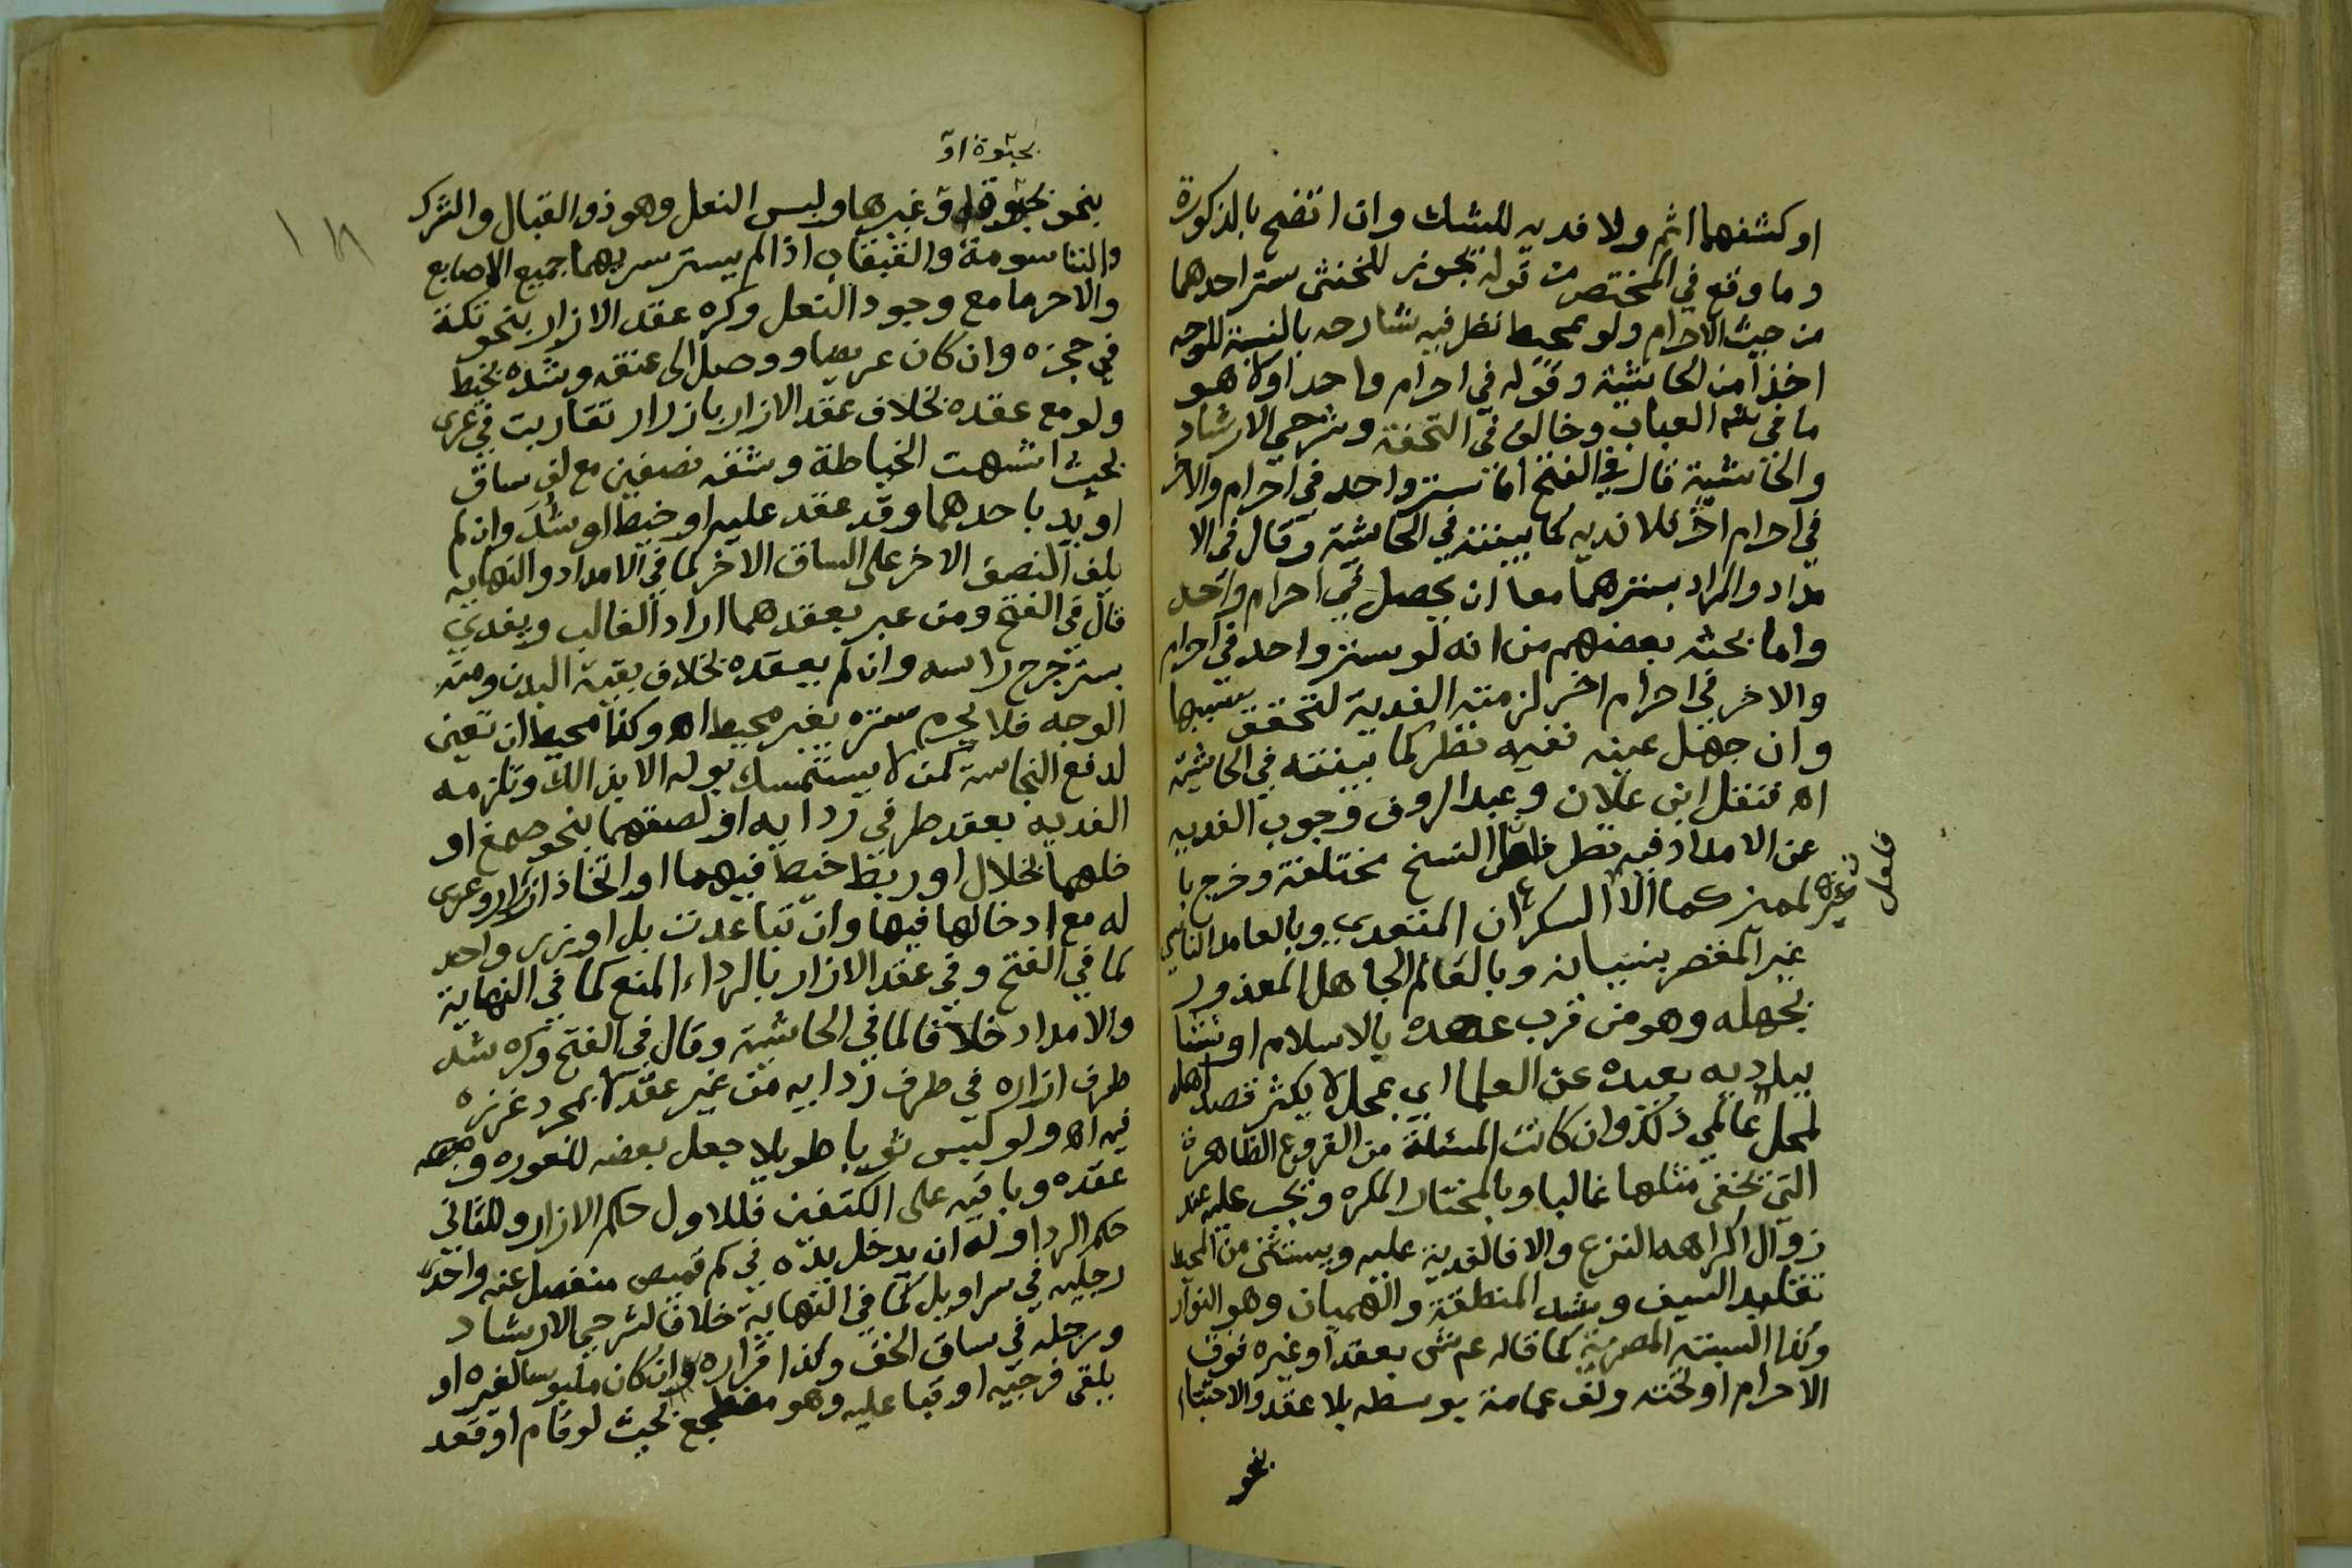 او كشفهما اثم ولا فديه للشك وان اتضح بالذكورة
وما وقع في المختصر من قوله يجوز للخنثى ستر احدهما
من حيث الاحرام ولو بمحيط نظر فيه شارحه بالنسبة للوجه
اخذا من الحاشية وقوله في احرام واحد اولا هو
ما في شرح العباب وخالف في التحفة وشرحي الارشاد
والحاشية قال في الفتح اما ستر واحد في احرام والاخر
في احرام اخر فلا فديه كما بينته في الحاشية وقال في الا
مداد والمراد بسترهما معا ان يحصل في احرام واحد
واما بحث بعضهم من انه لو ستر واحد في احرام
والاخر في احرام اخر لزمته الفدية لتحقق سببها
وان جهل عينه ففيه نظر كما بينته في الحاشية
اه فنقل ابن علان وعبد الروف وجوب الفديه
عن الامداد فيه نظر فلعل النسخ مختلفة وخرج با
لمميز غيره كما الا السكران المتعدي وبالعامد الناسي
غير المقصر بنسيانه وبالعالم الجاهل المعذور
بجهله وهو من قرب عهده بالاسلام او نشا
ببلاديه بعيده عن العلما اي بمحل لا يكثر قصد اهله
لمحل عالمي ذلك وان كانت المسئلة من الفروع الظاهرة
التي يخفى مثلها غالبا وبالمختار المكره ويجب عليه عند
زوال اكراهه النزع والا فالفدية عليه ويستثنى من المحيط
تقليد السيف وشد المنطقة والهميان وهو النوار
وكذا السبته المصرية كما قاله ع ش بعقد او غيره فوق
الاحرام او تحته ولف عمامة بوسطه بلا عقد والاحتبا
بنحو
فلعل
بحبوة او
بنحو حبوة او غيرها ولبس النعل وهو ذو القبال والشرك
والتاسومة والقبقاب اذا لم يستر سيرهما جميع الاصابع
والا حرما مع وجود النعل وكره عقد الازار بنحو تكة
في حجزه وان كان عريضا ووصل الى عنقه وشده بخيط
ولو مع عقده بخلاف عقد الازار بازرار تقاربت في عرى
بحيث اشبهت الخياطة وشقه نصفين مع لف ساق
او يد باحدهما وقد عقد عليه او خيط او شد وان لم
يلف النصف الاخر على الساق الاخر كما في الامداد والنهايه
قال في الفتح ومن عبر بعقدهما اراد الغالب ويفدي
بستر جرح راسه وان لم يعقده بخلاف بقية البدن ومنه
الوجه فلا يحرم ستره بغير محيط اه وكذا محيط ان تعين
لدفع النجاسة كمن لا يستمسك بوله الا بذالك وتلزمه
الفديه بعقد طرفي ردايه او لصقهما بنحو صمغ او
خلهما بخلال او ربط خيط فيهما او اتخاذ ازرار وعرى
له مع ادخالها فيها وان تباعدت بل او بزر واحد
كما في الفتح وفي عقد الازار بالرداء المنع كما في النهاية
والامداد خلافا لما في الحاشية وقال في الفتح وكره شد
طرف ازاره في طرف ردايه من غير عقد لا بمجرد غرزه
فيه اه ولو لبس ثوبا طويلا جعل بعضه للعوره
عقده وباقيه على الكتفين فللاول حكم الازار وللثاني
حكم الردا وله ان يدخل يده في كم قميص منفصل عنه واحدى
رجليه في سراويل كما في النهاية خلافا لشرحي الارشاد
ورجله في ساق الخف وكذا قراره وان كان ملبوسا لغيره او
يلقى فرجيه او قبا عليه وهو مضطجع بحيث لو قام او قعد
١٨